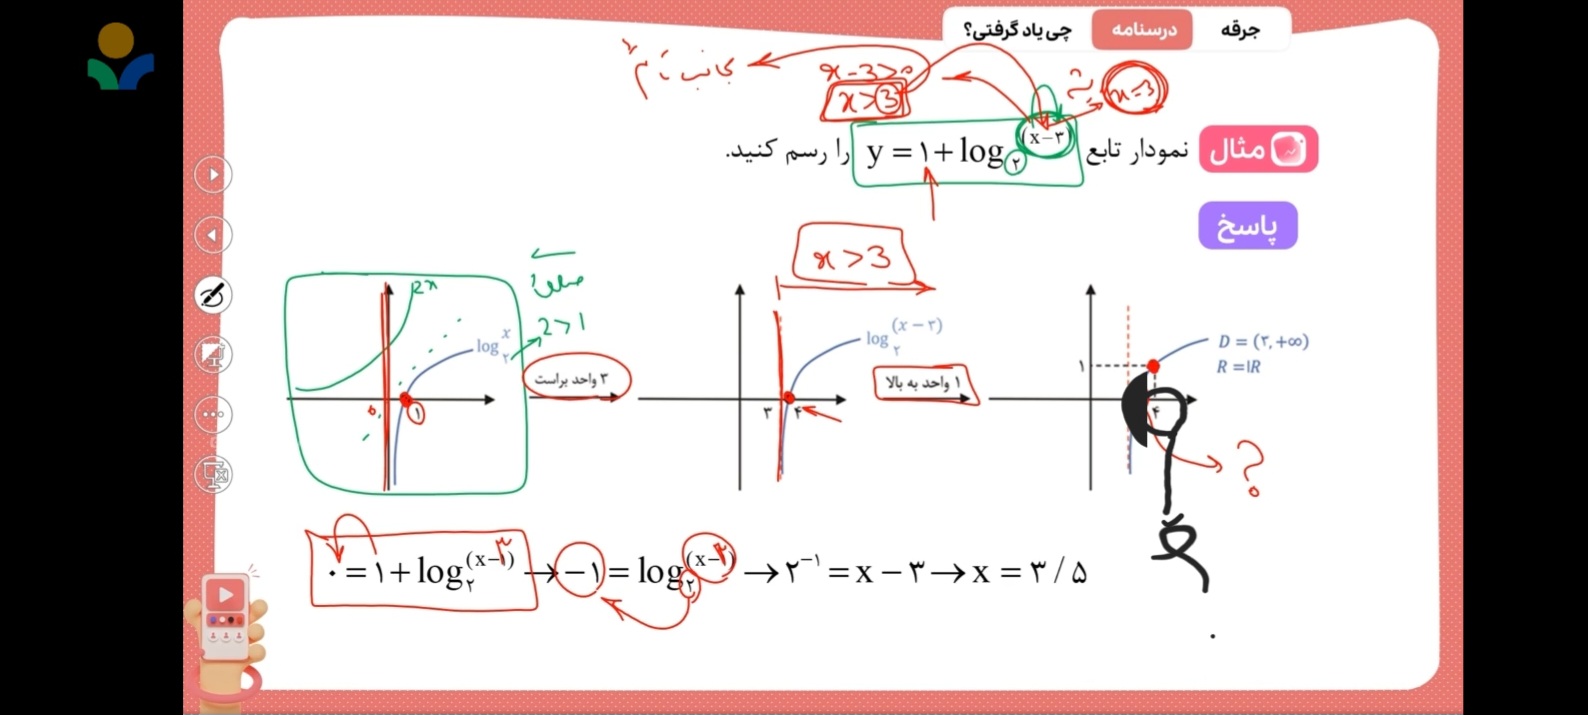 جرقه
درسنامه
چی یاد گرفتی؟
x-3>0
x>3
x=3
مثال
نمودار تابع y = ۱ + log₂^(x−۳) را رسم کنید.
پاسخ
x>3
2x
2>1
log₂^x
۰
۱
۳ واحد براست
log₂^(x−۳)
۳
۴
۱ واحد به بالا
D = (۳,+∞)
R = ℝ
۱
۴
?
۰ = ۱ + log₂^(x−۱) ۳ → −۱ = log₂^(x−۱) ۳ → ۲⁻¹ = x − ۳ → x = ۳ / ۵